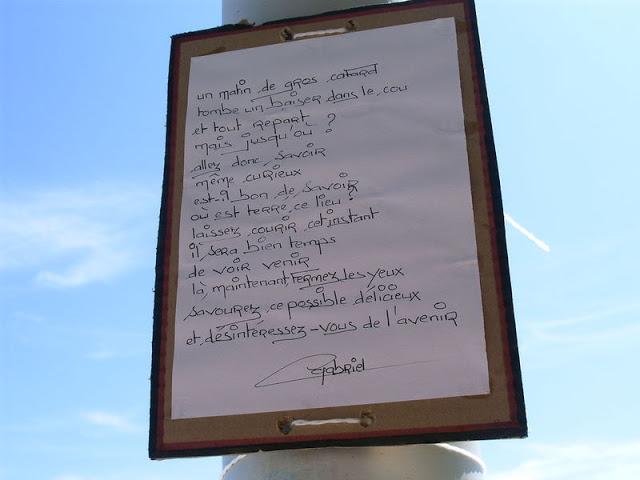 un matin de gros cafard
tombe un baiser dans le cou
et tout repart
mais jusqu'où ?
allez donc savoir
même curieux
est-il bon de savoir
où est terré ce lieu ?
laissez courir cet instant
il sera bien temps
de voir venir
là, maintenant, fermez les yeux
savourez ce possible délicieux
et désintéressez-vous de l'avenir
Gabriel